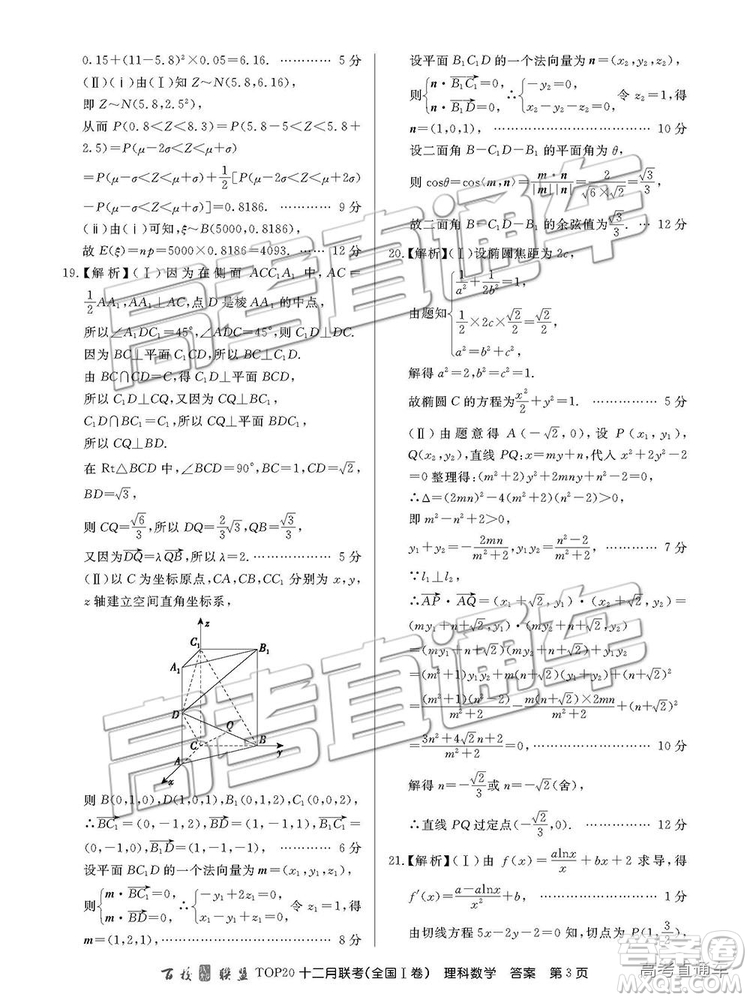 0.15+(11-5.8)²×0.05=6.16. ………… 5 分
(Ⅱ)(ⅰ)由(Ⅰ)知 Z~N(5.8,6.16),
即 Z~N(5.8,2.5²),
从而 P(0.8<Z<8.3)=P(5.8-5<Z<5.8+
2.5)=P(μ-2σ<Z<μ+σ)
=P(μ-σ<Z<μ+σ)+1/2[P(μ-2σ<Z<μ+2σ)-P(μ-
σ<Z<μ+σ)]=0.8186. ………… 9 分
(ⅱ)由(ⅰ)可知,ξ~B(5000,0.8186),
故 E(ξ)=np=5000×0.8186=4093. …… 12 分
19.【解析】(Ⅰ)因为在侧面 ACC₁A₁ 中,AC=
1/2 AA₁,AA₁⊥AC,点 D 是棱 AA₁ 的中点,
所以∠A₁DC₁=45°,∠ADC=45°,所以 C₁D⊥CD.
因为 BC⊥平面 C₁CD,所以 BC⊥C₁D.
由 BC∩CD=C,得 C₁D⊥平面 BCD,
所以 C₁D⊥CQ,又因为 CQ⊥BC₁,
C₁D∩BC₁=C₁,所以 CQ⊥平面 BDC₁,
所以 CQ⊥BD.
在 Rt△BCD 中,∠BCD=90°,BC=1,CD=√2,
BD=√3,
则 CQ=√6/3,所以 DQ=2/3√3,QB=√3/3,
又因为DQ=λQB,所以 λ=2. ………… 5 分
(Ⅱ)以 C 为坐标原点,CA,CB,CC₁ 分别为 x,y,
z 轴建立空间直角坐标系,
z
C₁
B₁
A₁
D
Q
C
B
y
A
x
则 B(0,1,0),D(1,0,1),B₁(0,1,2),C₁(0,0,2),
∴BC₁=(0,-1,2),BD=(1,-1,1),B₁C₁=(0,-1,
0),B₁D=(1,-1,-1), ………… 6 分
设平面 BC₁D 的一个法向量为 m=(x₁,y₁,z₁),
则{m·BC₁=0, m·BD=0, ∴{-y₁+2z₁=0, x₁-y₁+z₁=0, 令 z₁=1,得
m=(1,2,1), ………… 8 分
设平面 B₁C₁D 的一个法向量为 n=(x₂,y₂,z₂),
则{n·B₁C₁=0, n·B₁D=0, ∴{-y₂=0, x₂-y₂-z₂=0, 令 z₂=1,得
n=(1,0,1), ………… 10 分
设二面角 B-C₁D-B₁ 的平面角为 θ,
则 cosθ=cos⟨m,n⟩=m·n/|m||n|=2/(√6×√2)=√3/3.
故二面角 B-C₁D-B₁ 的余弦值为√3/3. … 12 分
20.【解析】(Ⅰ)设椭圆焦距为 2c,
由题知
解得
故椭圆 C 的方程为x²/2+y²=1. ………… 5 分
(Ⅱ)由题意得 A(-√2,0),设 P(x₁,y₁),
Q(x₂,y₂),直线 PQ:x=my+n,代入 x²+2y²-2
=0 整理得:(m²+2)y²+2mny+n²-2=0,
∴Δ=(2mn)²-4(m²+2)(n²-2)>0,
即 m²-n²+2>0,
y₁+y₂=-2mn/(m²+2),y₁y₂=(n²-2)/(m²+2). ………… 7 分
∵l₁⊥l₂,
∴AP·AQ=(x₁+√2,y₁)·(x₂+√2,y₂)=
(my₁+n+√2,y₁)·(my₂+n+√2,y₂)
=(my₁+n+√2)(my₂+n+√2)+y₁y₂
=(m²+1)y₁y₂+m(n+√2)(y₁+y₂)+(n+√2)²
=3n²+4√2n+2/(m²+2)=0, ………… 10 分
解得 n=-√2/3 或 n=-√2(舍),
∴直线 PQ 过定点(-√2/3,0). ………… 12 分
21.【解析】(Ⅰ)由 f(x)=alnx/x+bx+2 求导,得
f′(x)=(a-alnx)/x²+b, ………… 1 分
由切线方程 5x-2y-2=0,可知切点为(1,3/2),
百校联盟 TOP20 十二月联考(全国Ⅰ卷) 理科数学 答案 第3页
高考直通车
答案圈